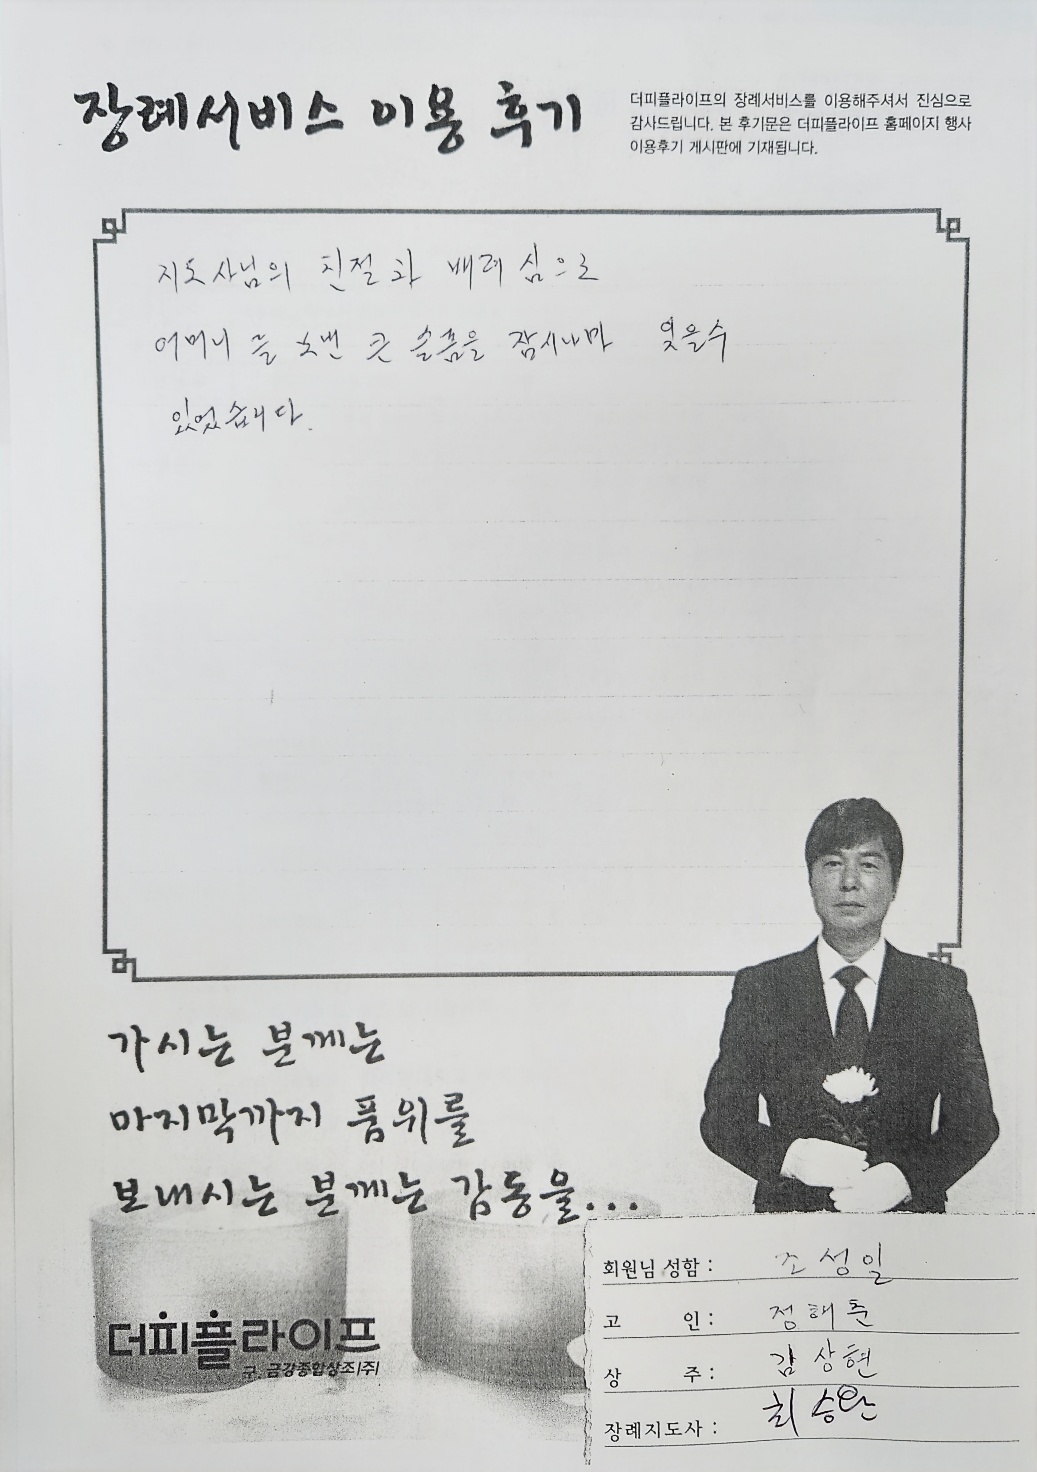 장례서비스 이용 후기
더피플라이프의 장례서비스를 이용해주셔서 진심으로
감사드립니다. 본 후기문은 더피플라이프 홈페이지 행사
이용후기 게시판에 기재됩니다.
지도사님의 친절과 배려심으로
어머니를 보낸 큰 슬픔을 잠시나마 잊을수
있었습니다.
가시는 분께는
마지막까지 품위를
보내시는 분께는 감동을...
더피플라이프
구. 금강종합상조(주)
회원님 성함 : 조성일
고 인 : 정해춘
상 주 : 김상현
장례지도사 : 최승완